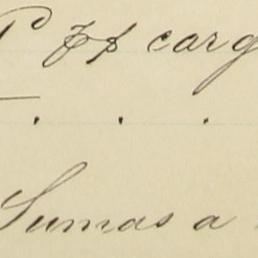 carg
. . .
Sumas a